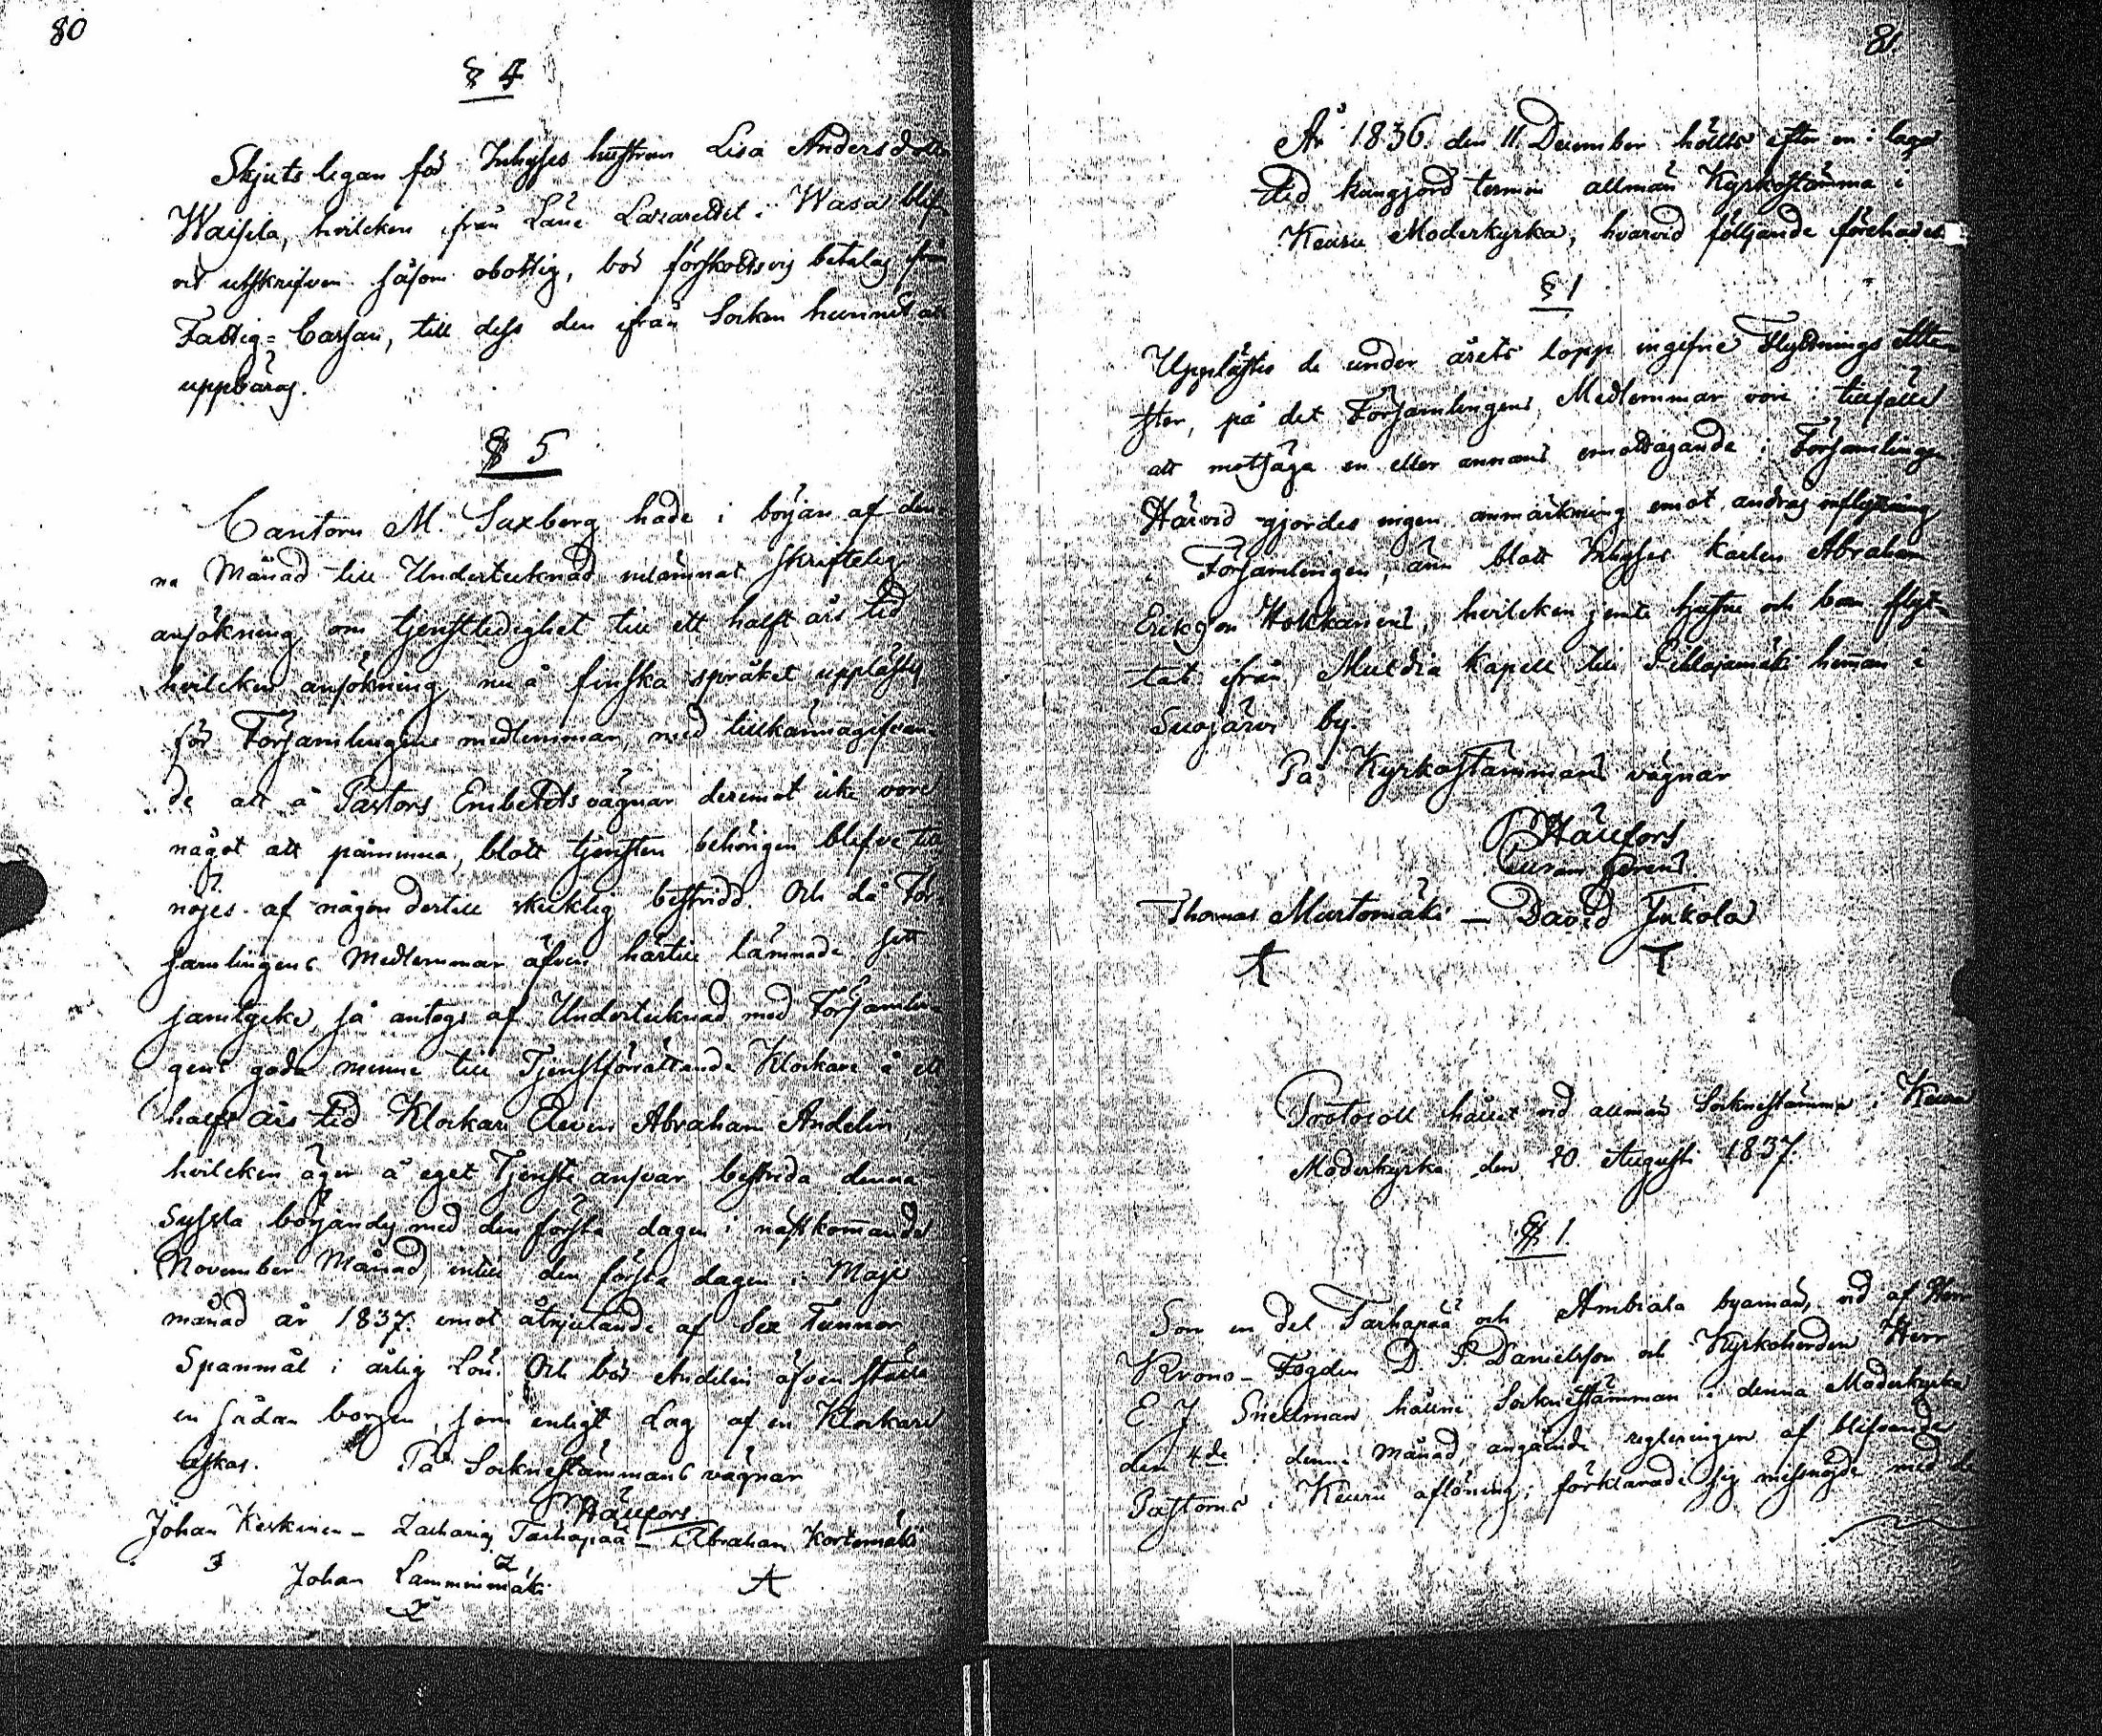 80
§ 4
Skjuts legan för Inhyses hustrun Lisa Andersdotter
Waissla, hvilcken ifrån Läne Lazarettet i Wasa blif-
vit utskrifven såsom obottlig, bör förskottsvis betalas ifrån
Fattig-Cassan, till dess den ifrån Socken hunnit att
uppbäras.
§ 5
Cantorn M. Saxberg hade i början af den-
na Månad till Undertecknad inlämnat skriftelig
ansökning om tjenstledighet till ett halft års tid
hvilcken ansökning nu å finska språket upplästes
för Församlingens medlemmar, med tillkännagifvan-
de att å Pastors Embetets vägnar deremot icke vore
något att påminna, blott tjensten behörigen blefve till
nöjes af någon dertill skicklig bestridd. Och då För-
samlingens Medlemmar äfven härtill lämnade sitt
samtycke, så antogs af Undertecknad med Församlin-
gens goda minne till Tjenstförrättande Klockare å ett
halft års tid Klockare Eleven Abraham Andelin,
hvilcken äger å eget Tjenste ansvar bestrida denna
Syssla börjandes med den första dagen i nästkommande
November Månad, intill den första dagen i Maji
månad år 1837. emot åtnjutande af Sex Tunnor
Spanmål i årlig Lön. Och bör Andelin äfven ställa
en sådan borgen, som enligt Lag af en Klockare
äskas. På Socknestämmans vägnar
Hällfors.
Johan Keskinen - Zacharias Tarhapää - Abraham Kortemäki
I Z A
Johan Lamminmäki
I
81.
År 1836. den 11 December hölls efter en i laga
tid kungjord termin allmän Kyrkostämma i
Keuru Moderkyrka, hvarvid följande förehades:
§ 1
Upplästes de under årets lopp ingifne Flyttnings Atte-
ster, på det Församlingens Medlemmar vore i tillfälle
att motsäga en eller annans emottagande i Församlingen
Härvid gjordes ingen anmärkning emot andras inflyttning
i Församlingen, än blott Inhyses Karlen Abraham
Eriksson Hokkanens, hvilcken jemte hustru och barn flyt-
tat ifrån Multia Kapell till Pihlajamäki hemman i
Suojärvi by.
På Kyrkostämmans vägnar
Hällfors
Curam Gerens.
Thomas Murtomäki — David Jukola
Protocoll hållet vid allmän Socknestämma i Keuru
Moderkyrka den 20 Augusti 1837.
§ 1.
Som en del Tarhapää och Ambiala byamän, vid af Herr
Krono-Fogden D. P. Danielsson och Kyrkoherden Herr
E J Snellman hållne Socknestämman i denna Moderkyrka
den 4de i denne Månad, angående regleringen af blifvande
Pastorns i Keuru aflöning, förklarade sig missnöjde med de